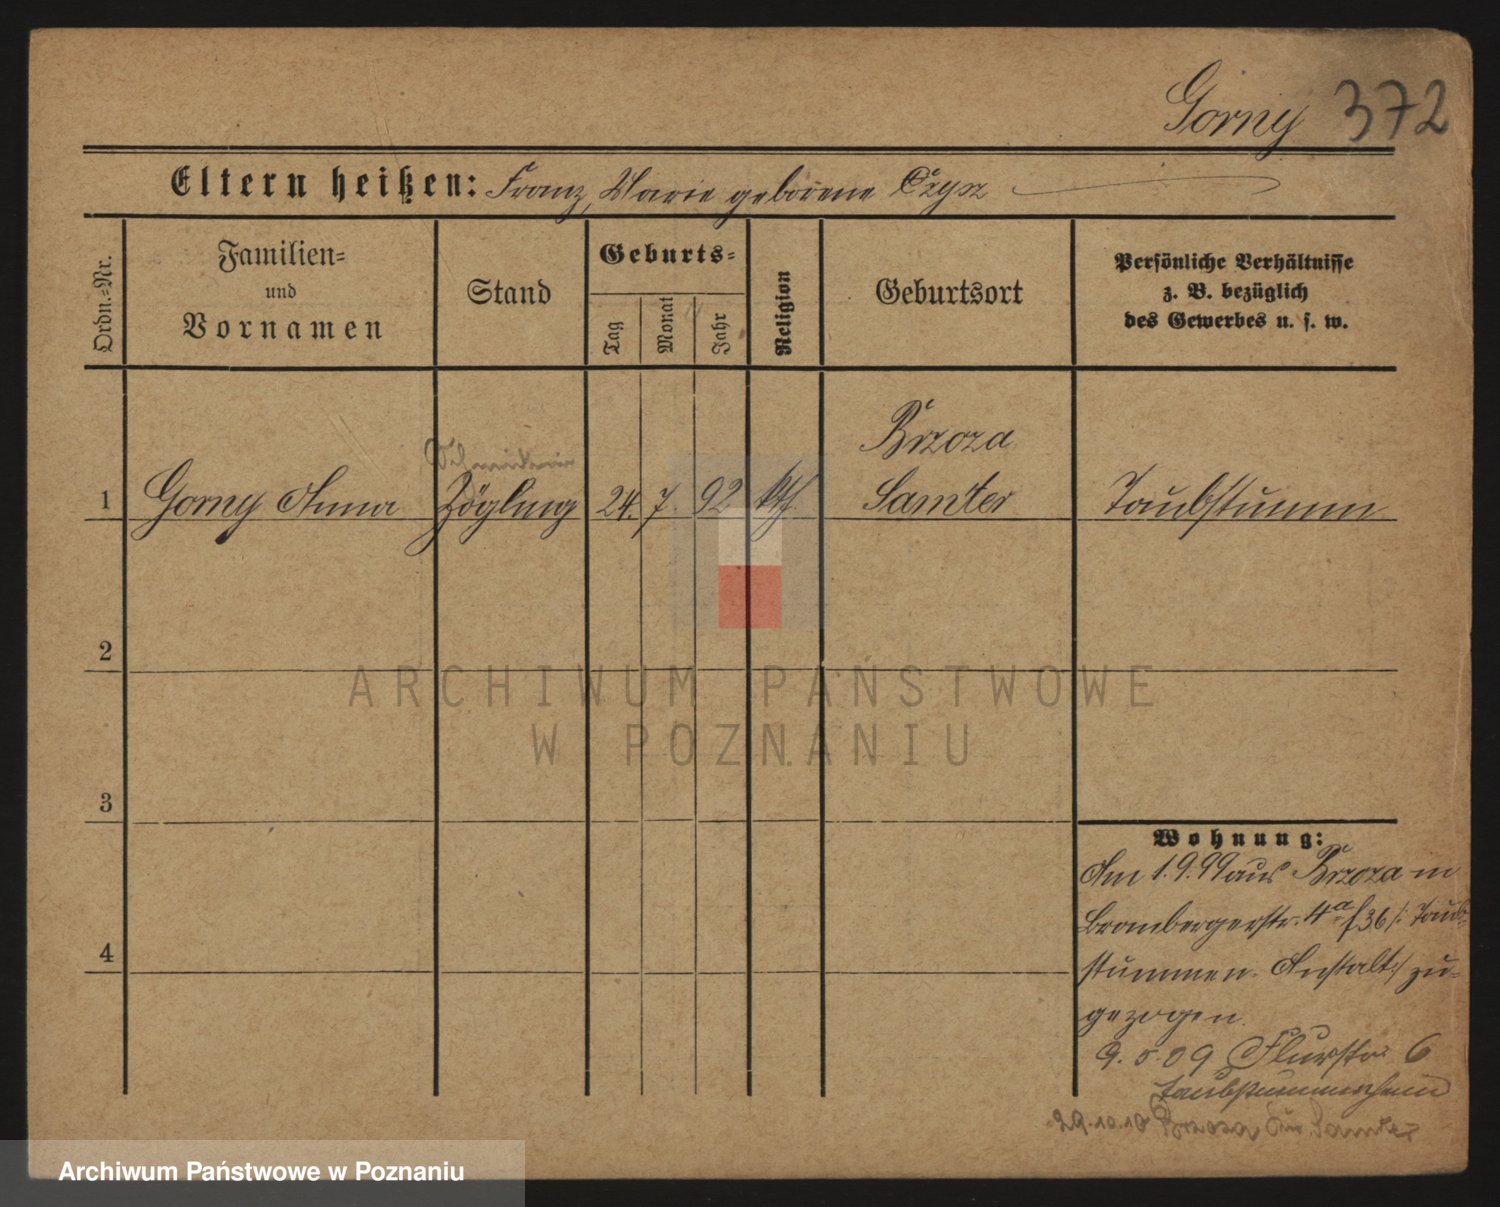 Gorny 372
Eltern heißen: Franz, Marie geborene Czysz
Ordn.-Nr.
Familien-
und
Vornamen
Stand
Geburts-
Tag
Monat
Jahr
Religion
Geburtsort
Persönliche Verhältnisse
z. B. bezüglich
des Gewerbes u. s. w.
Brzoza
1 Gorny Anna Zögling 24. 7. 92 kth. Samter Taubstumm
2
ARCHIWUM PAŃSTWOWE
W POZNANIU
3
Wohnung:
Am 1.9.99 aus Brzoza in
Brombergerstr. 4a f 36 /: Taub-
4
stummen-Anstalt :/ zu-
gezogen.
9.5.09 Flurstr. 6
Taubstummenheim
29.10.10 Brzoza Samter
Archiwum Państwowe w Poznaniu